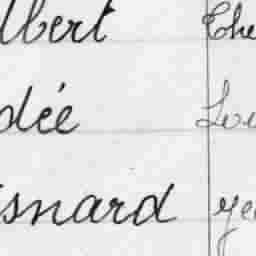 lbert The
dée Lou
snard ye